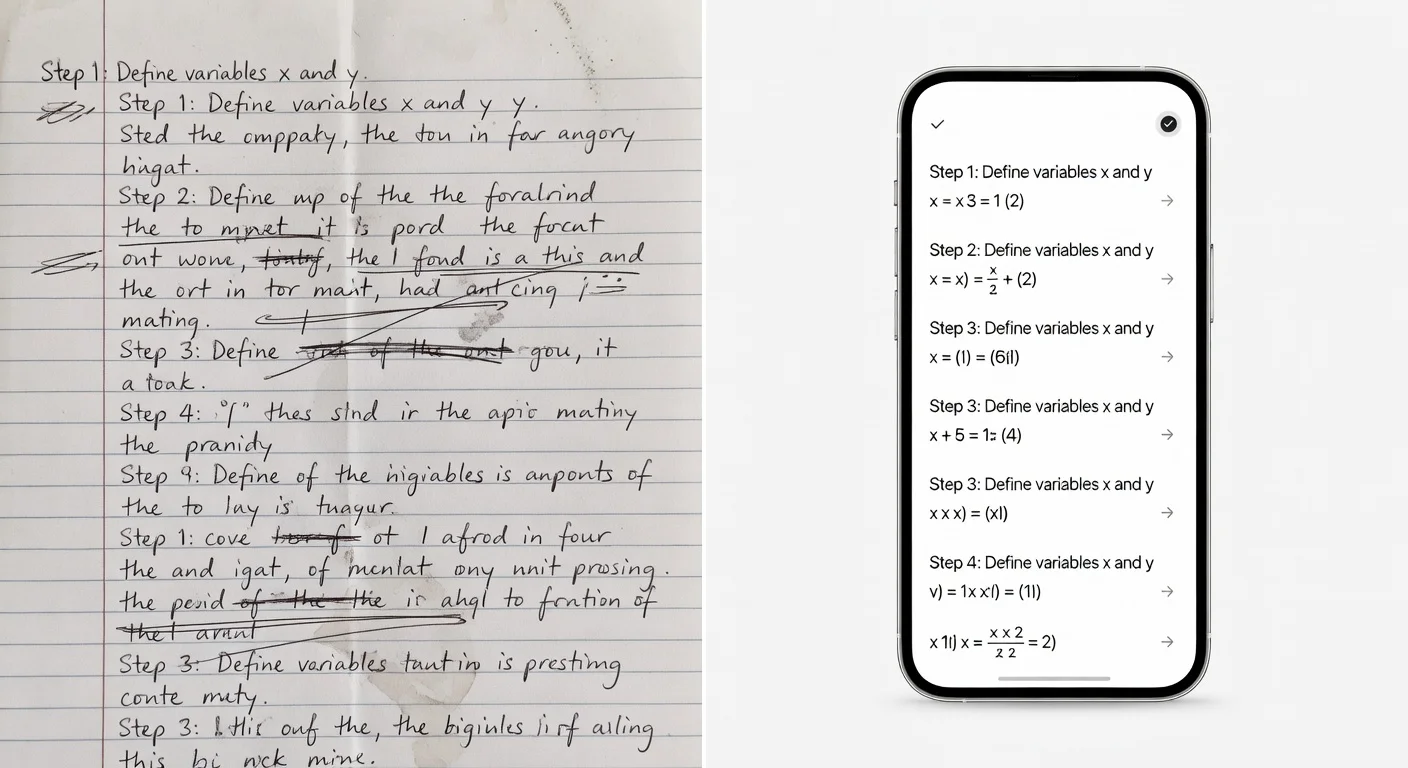 Step 1: Define variables x and y.
Step 1: Define variables x and y y.
Sted the omppaty, the ton in far angory
hingat.
Step 2: Define mp of the the foralrind
the to mnet it is pord the focut
ont wone, the I fond is a this and
the ort in tor mait, had ant cing
mating.
Step 3: Define of the gou, it
a toak.
Step 4: thes slnd ir the apic matiny
the pranidy
Step 9: Define of the nigiables is anponts of
the to lay is tuagur.
Step 1: cove ot I afrod in four
the and igat, of mcnlat ony nnit prosing.
the peuid of the the ir ahgl to frntion of
the
Step 3: Define variables taut in is prestimg
conte muty.
Step 3: this ouf the, the biginles ailing
this bi nick mine.
Step 1: Define variables x and y
x = x 3 = 1 (2)
Step 2: Define variables x and y
x = x) = x/2 + (2)
Step 3: Define variables x and y
x = (1) = (6(l)
Step 3: Define variables x and y
x + 5 = 1: (4)
Step 3: Define variables x and y
x x x) = (xl)
Step 4: Define variables x and y
v) = 1x x'() = (1l)
x 1l) x = x x 2 / 2 2 = 2)